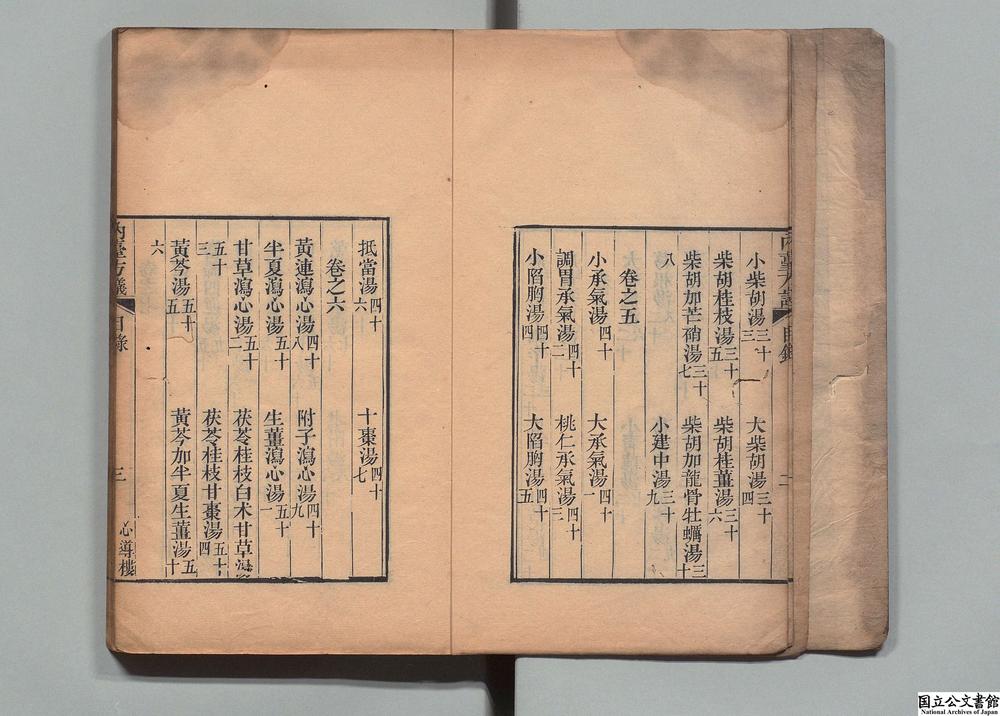 目錄 二
小柴胡湯三十三 大柴胡湯三十四
柴胡桂枝湯三十五 柴胡桂薑湯三十六
柴胡加芒硝湯三十七 柴胡加龍骨牡蠣湯三十
八 小建中湯三十九
卷之五
小承氣湯四十 大承氣湯四十一
調胃承氣湯四十二 桃仁承氣湯四十三
小陷胸湯四十四 大陷胸湯四十五
抵當湯四十六 十棗湯四十七
卷之六
黃連瀉心湯四十八 附子瀉心湯四十九
半夏瀉心湯五十 生薑瀉心湯五十一
甘草瀉心湯五十二 茯苓桂枝白朮甘草湯
五十三 茯苓桂枝甘棗湯五十四
黃芩湯五十五 黃芩加半夏生薑湯五十
六
內臺方議 目錄 三 心導樓
国立公文書館
National Archives of Japan